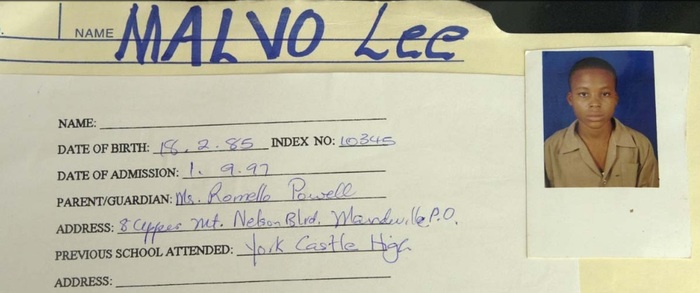 NAME MALVO Lee
NAME:
DATE OF BIRTH: 18.2.85 INDEX NO: 10345
DATE OF ADMISSION: 1. 9.97
PARENT/GUARDIAN: Ms. Romello Powell
ADDRESS: 8 Upper Mt. Nelson Blrd. Mandville P.O.
PREVIOUS SCHOOL ATTENDED: York Castle High
ADDRESS: